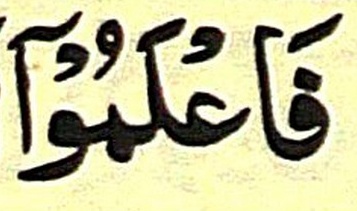 فَاعْلَمُوْٓا